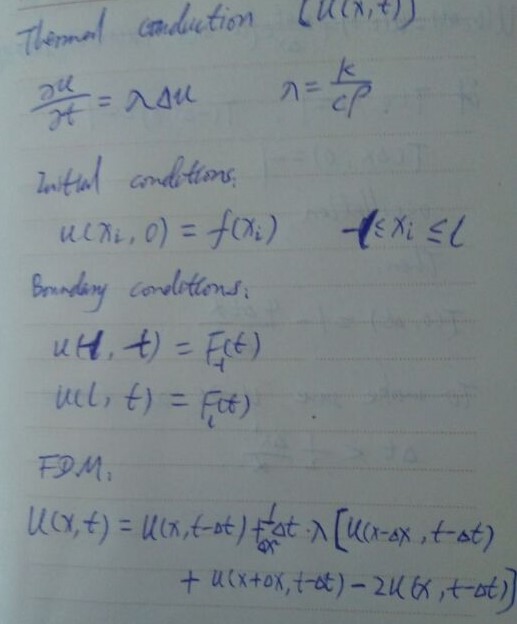 Thermal conduction [u(x,t)]
∂u/∂t = λΔu λ = k/cρ
Initial conditions:
u(xi, 0) = f(xi) -l ≤ xi ≤ l
Boundary conditions:
u(-l, t) = F-l(t)
u(l, t) = Fl(t)
FDM:
u(x,t) = u(x,t-Δt) + 1/Δx² Δt·λ[u(x-Δx, t-Δt)
+ u(x+Δx, t-Δt) - 2u(x, t-Δt)]